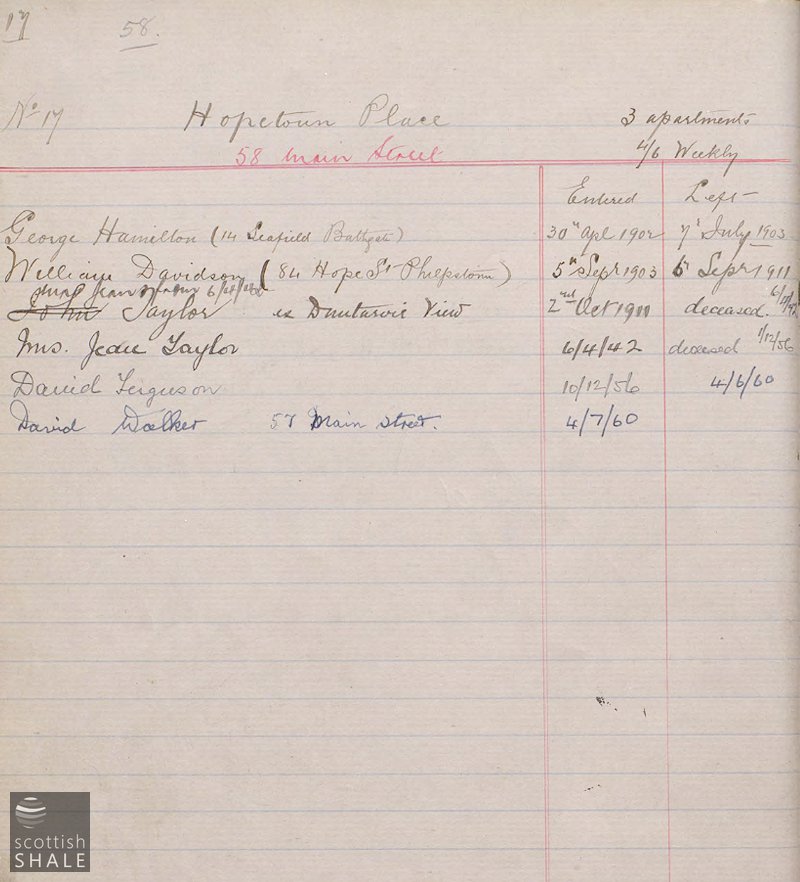 17 58.
No 17 Hopetoun Place 3 apartments
58 Main Street 4/6 Weekly
Entered Left
George Hamilton (14 Seafield Bathgate) 30th Apl 1902 7th July 1903
William Davidson (84 Hope St Philpstoun) 5th Sept 1903 6 Sept 1911
Mrs Jean 6/4/42
John Taylor Duntarvie View 2nd Oct 1911 deceased.
Mrs. Jean Taylor 6/4/42 deceased 1/12/56
David Ferguson 10/12/56 4/6/60
David Walker 57 Main Street. 4/7/60
scottish
SHALE